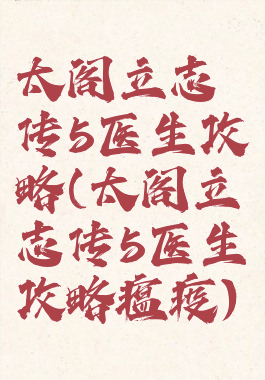 太阁立志
传5医生攻
略(太阁立
志传5医生
攻略瘟疫)